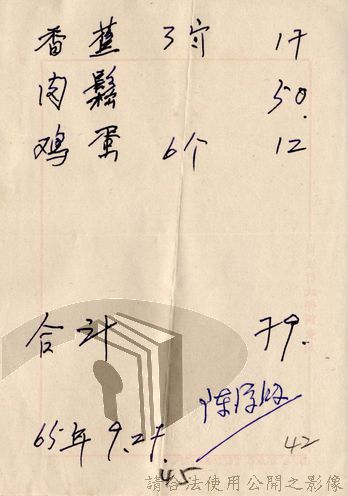 香蕉 3斤 17
肉鬆 50.
鸡蛋 6个 12
合計 79.
65年 9.27.
42
45
請合法使用公開之影像